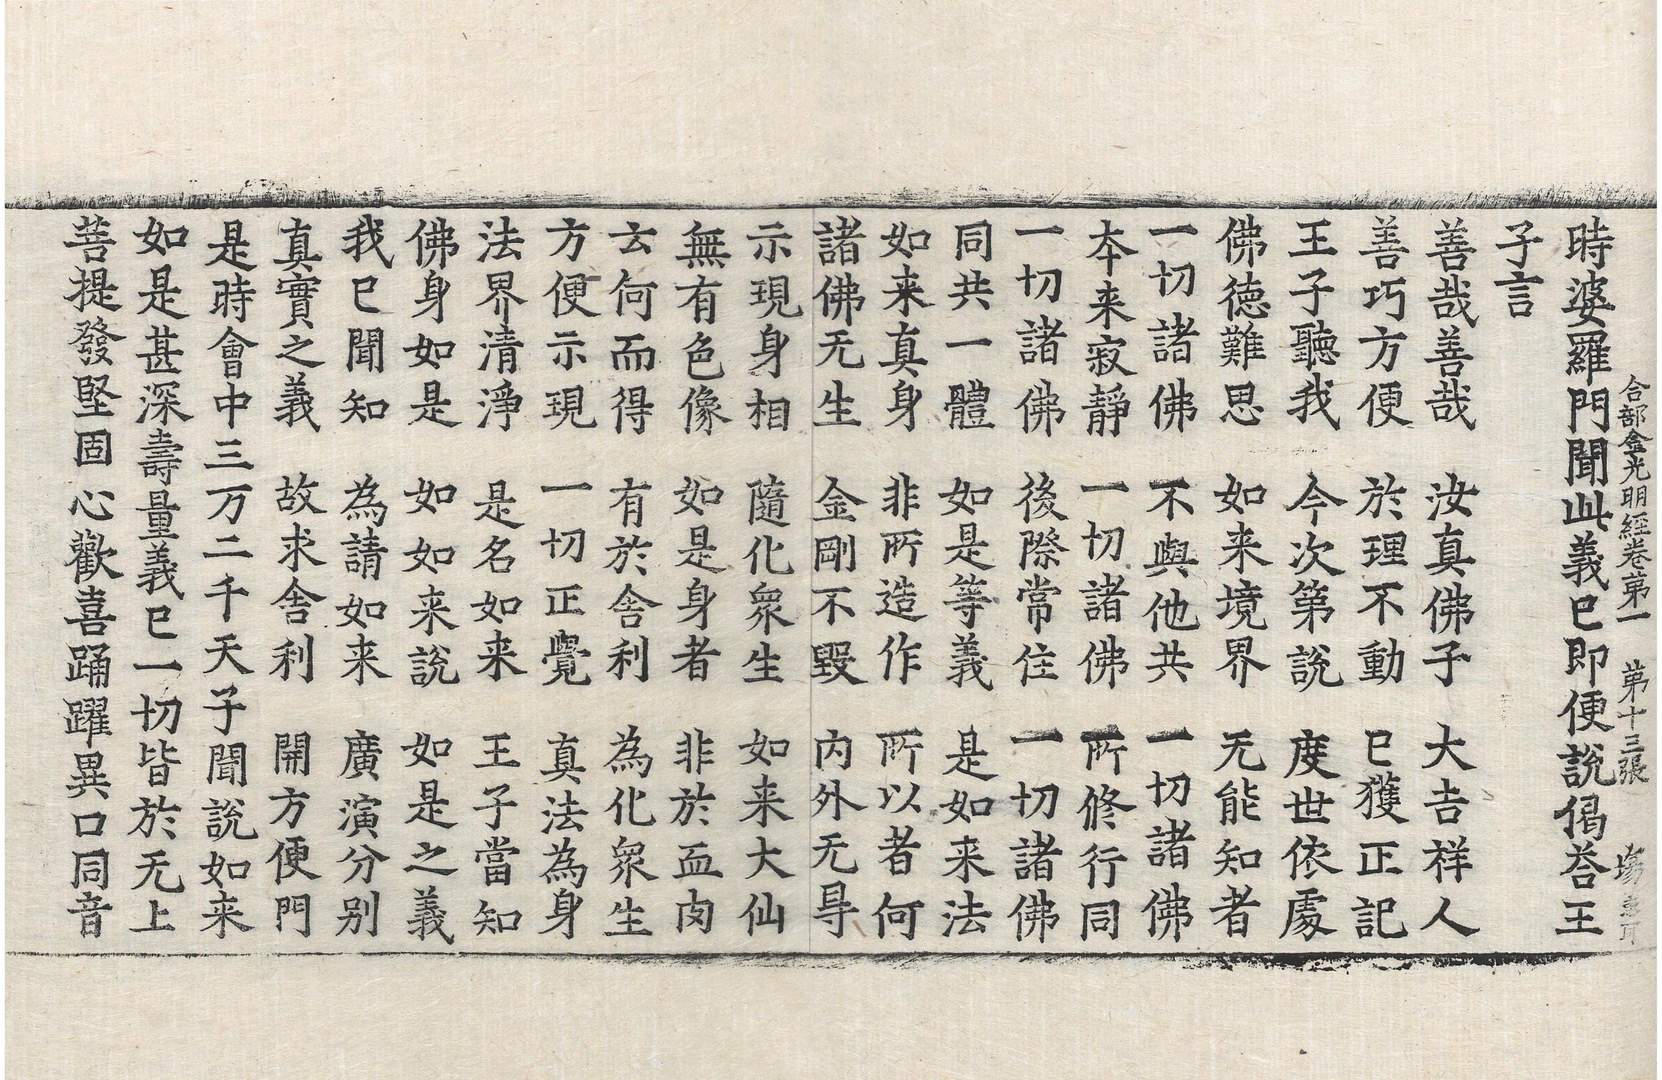 合部金光明經卷第一　第十三張　場
時婆羅門聞此義已即便說偈荅王
子言
善哉善哉　汝真佛子　大吉祥人
善巧方便　於理不動　已獲正記
王子聽我　今次第說　度世依處
佛德難思　如来境界　无能知者
一切諸佛　不與他共　一切諸佛
本来寂靜　一切諸佛　所修行同
一切諸佛　後際常住　一切諸佛
同共一體　如是等義　是如来法
如来真身　非所造作　所以者何
諸佛无生　金剛不毀　内外无㝵
示現身相　隨化衆生　如来大仙
無有色像　如是身者　非於血肉
云何而得　有於舍利　為化衆生
方便示現　一切正覺　真法為身
法界清淨　是名如来　王子當知
佛身如是　如如来說　如是之義
我已聞知　為請如来　廣演分别
真實之義　故求舍利　開方便門
是時會中三万二千天子聞說如来
如是甚深壽量義已一切皆於无上
菩提發堅固心歡喜踊躍異口同音